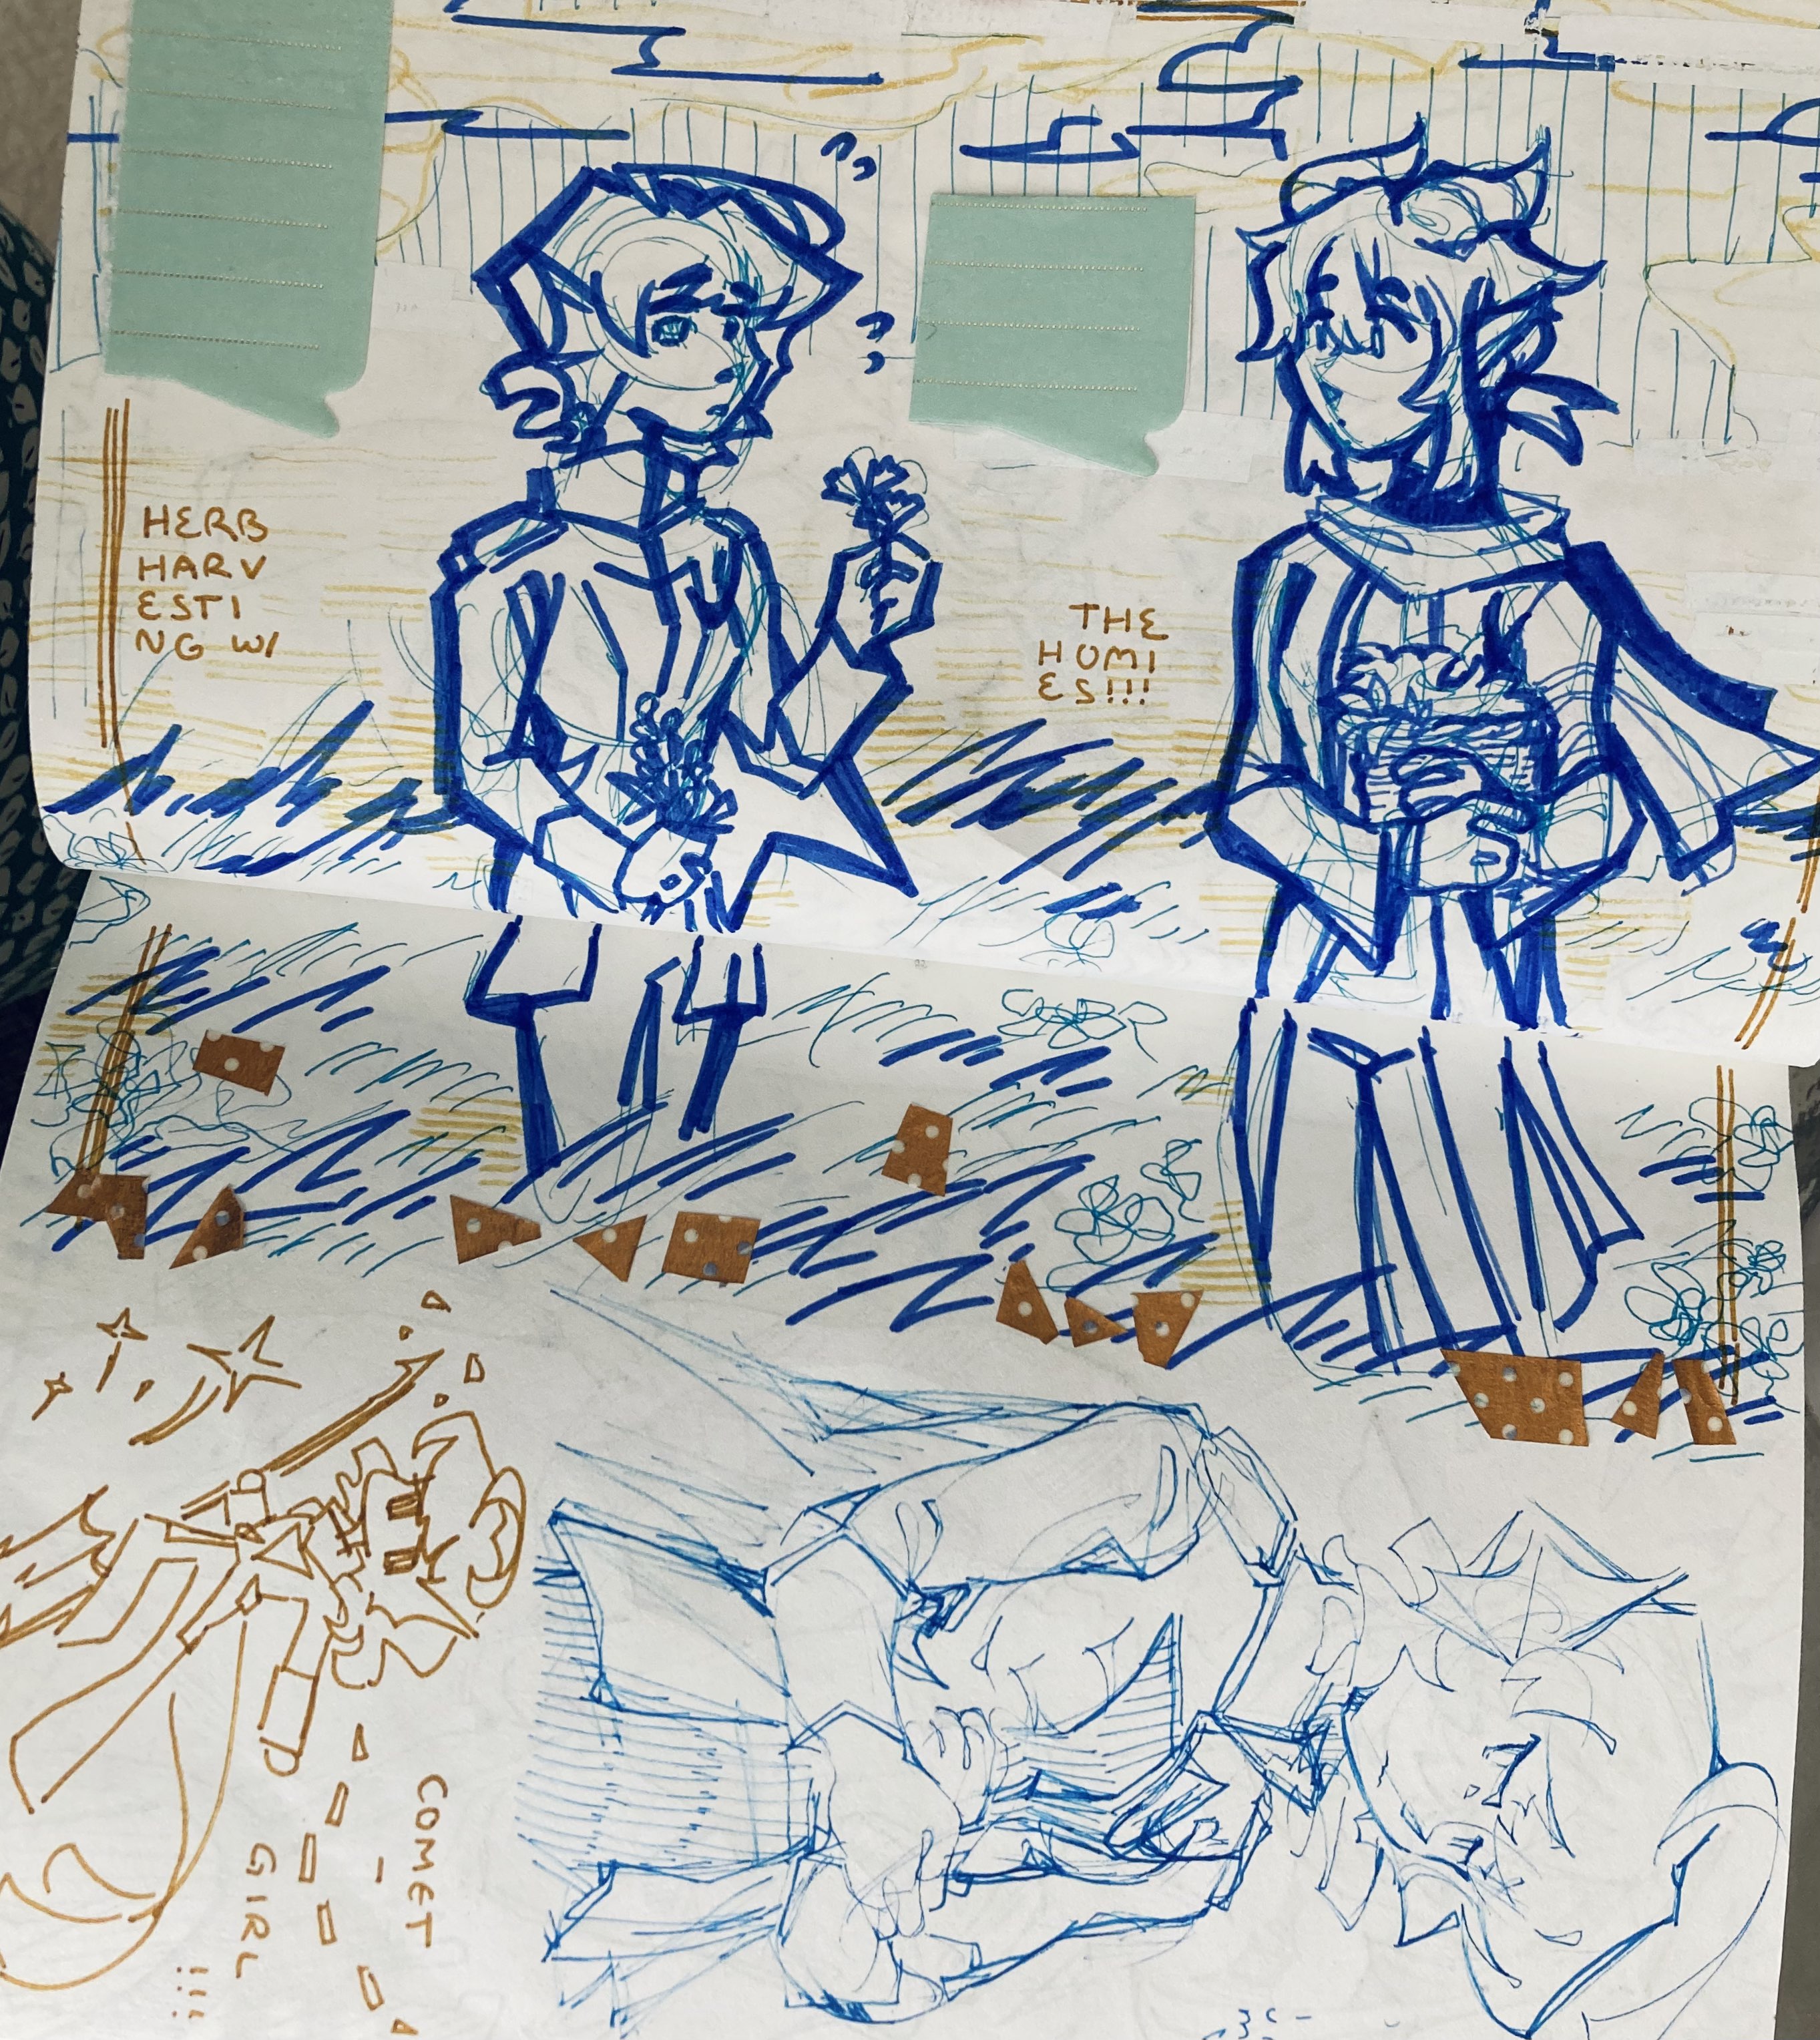 HERB
HARV
ESTI
NG W/
THE
HOMI
ES!!!
COMET
GIRL
!!!